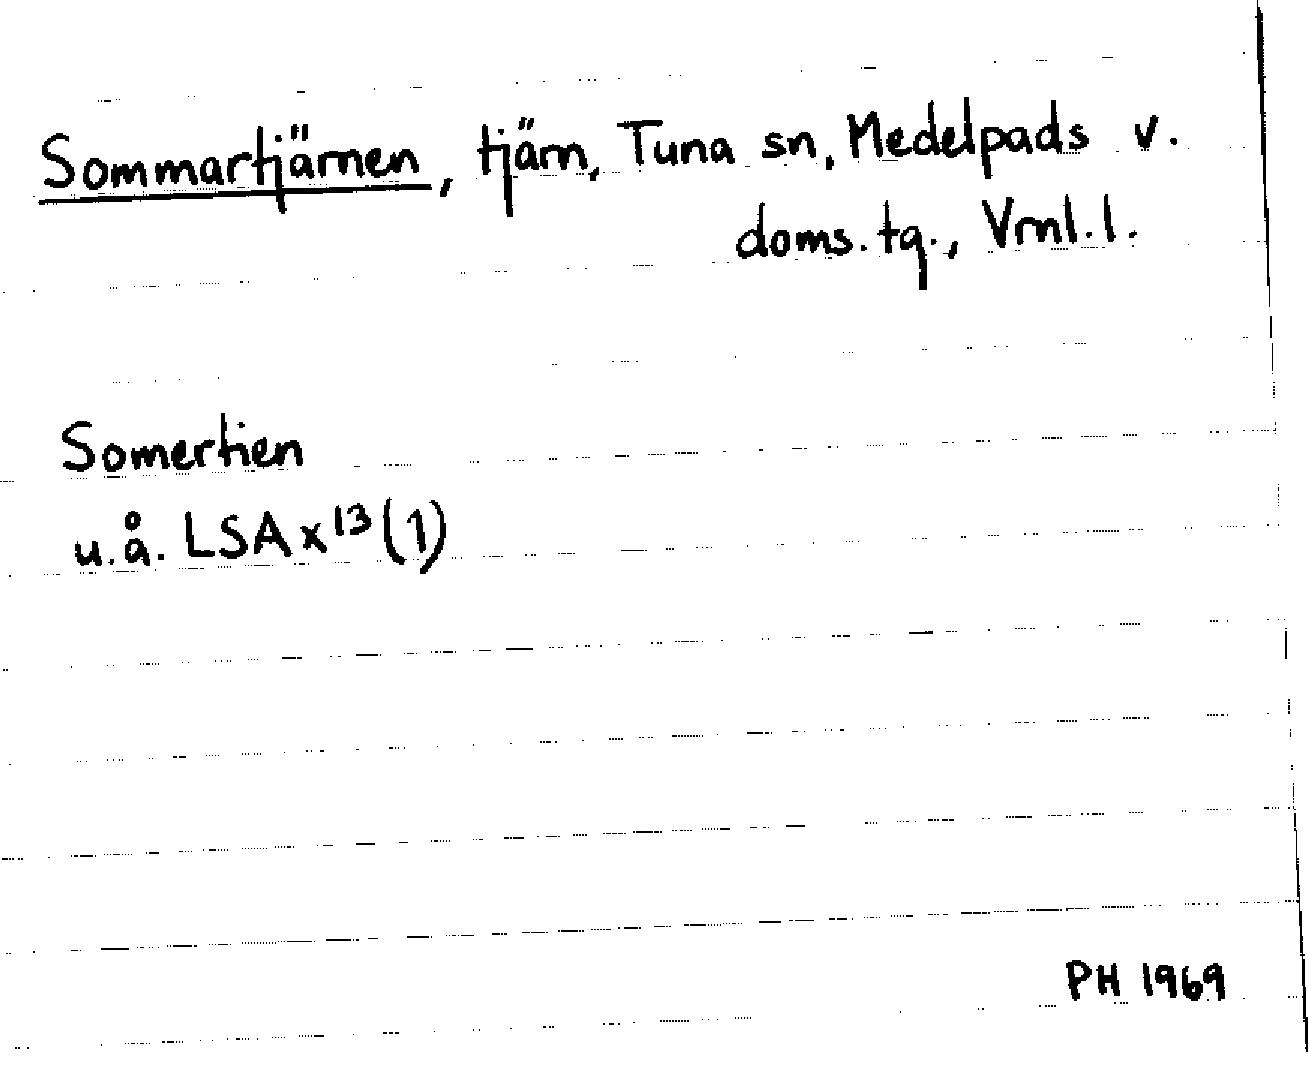 Sommartjärnen, tjärn, Tuna sn, Medelpads v.
doms.tg., Vrnl.l.
Somertien
u.å. LSA x¹³(1)
PH 1969